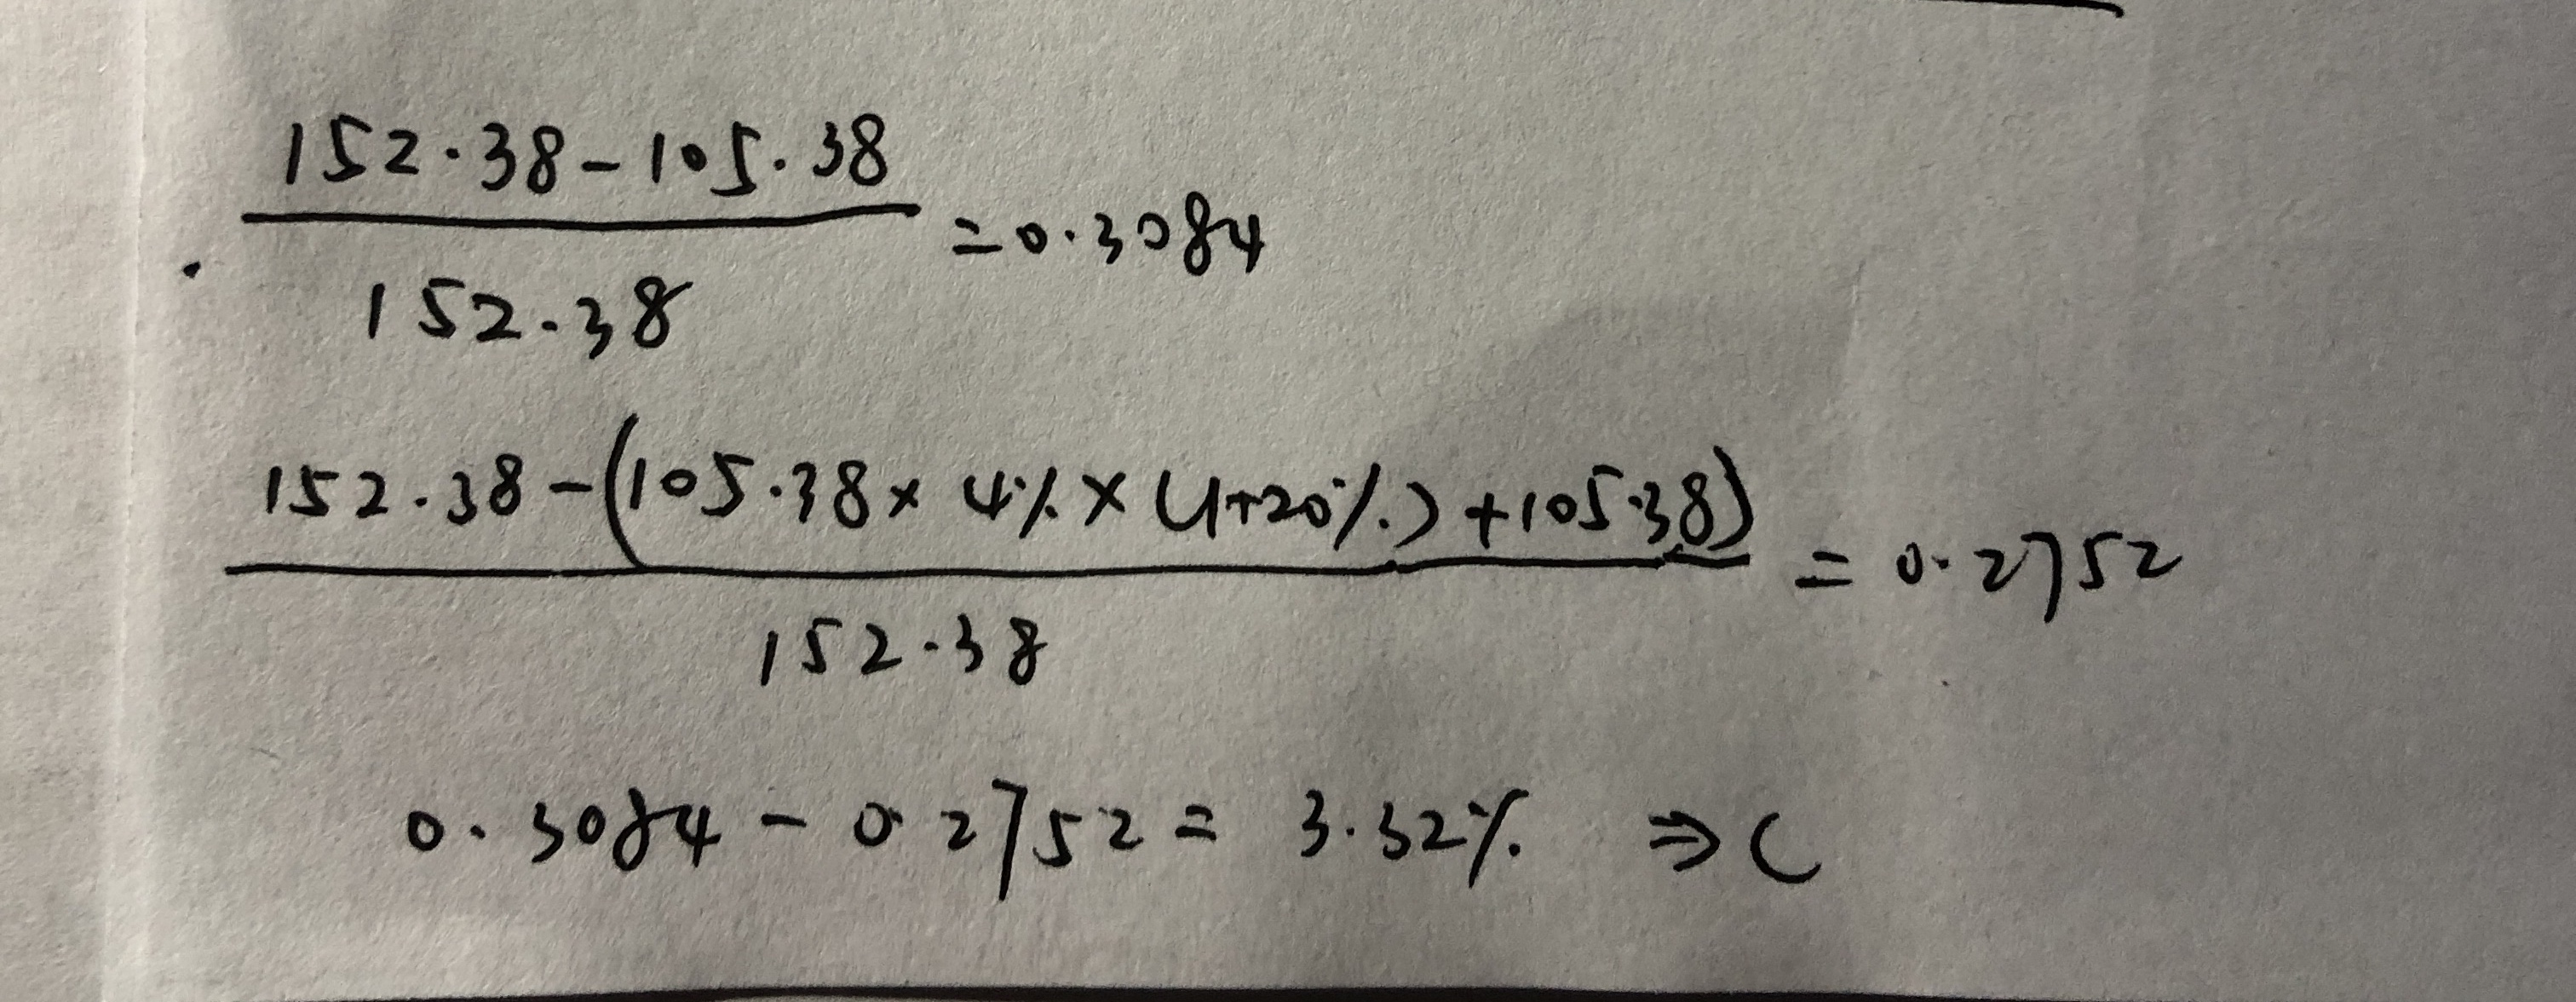 152.38-105.38
=0.3084
152.38
152.38-(105.38×4%×(1+20%)+105.38)
=0.2752
152.38
0.3084-0.2752=3.32% ⇒C